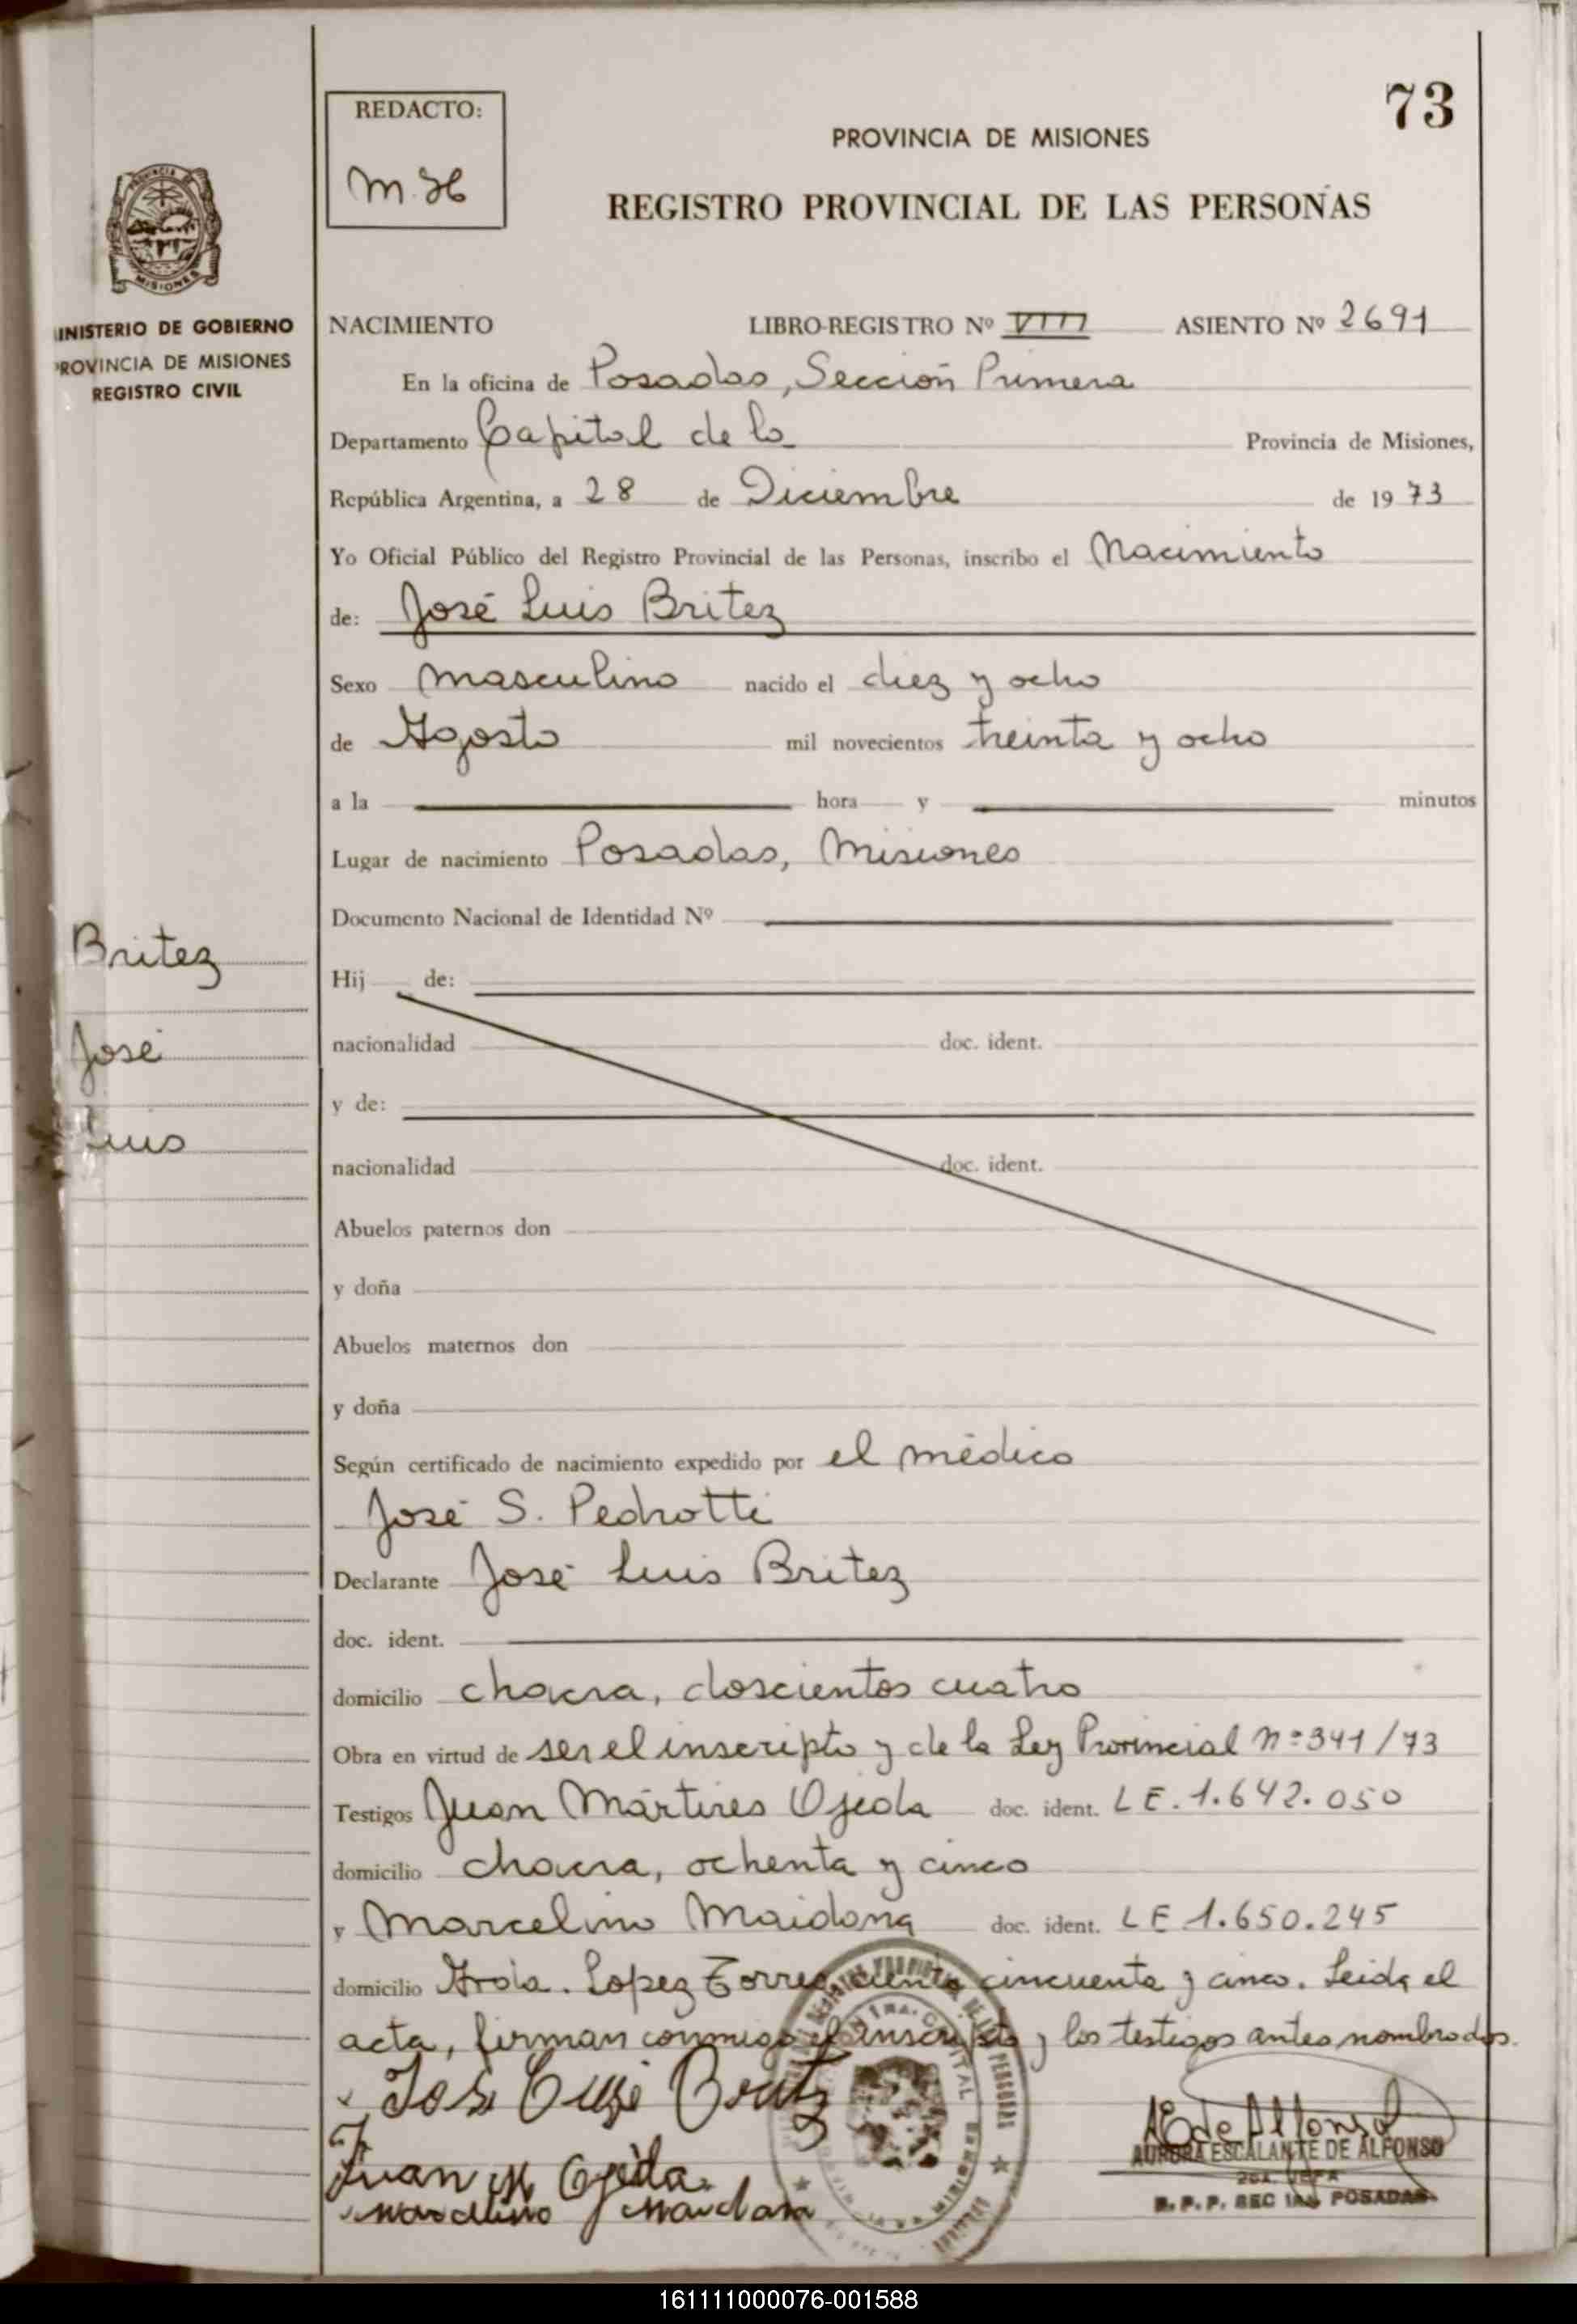 73
REDACTO:
M. H
PROVINCIA DE MISIONES
REGISTRO PROVINCIAL DE LAS PERSONAS
PROVINCIA DE
MISIONES
INISTERIO DE GOBIERNO
PROVINCIA DE MISIONES
REGISTRO CIVIL
NACIMIENTO LIBRO-REGISTRO Nº VIII ASIENTO Nº 2691
En la oficina de Posadas, Sección Primera
Departamento Capital de la Provincia de Misiones,
República Argentina, a 28 de Diciembre de 1973
Yo Oficial Público del Registro Provincial de las Personas, inscribo el Nacimiento
de: José Luis Britez
Sexo masculino nacido el diez y ocho
de Agosto mil novecientos treinta y ocho
a la hora y minutos
Lugar de nacimiento Posadas, Misiones
Documento Nacional de Identidad Nº
Britez
José
Luis
Hij de:
nacionalidad doc. ident.
y de:
nacionalidad doc. ident.
Abuelos paternos don
y doña
Abuelos maternos don
y doña
Según certificado de nacimiento expedido por el médico
José S. Pedrotti
Declarante José Luis Britez
doc. ident.
domicilio chacra, doscientos cuatro
Obra en virtud de ser el inscripto y de la Ley Provincial nº 341/73
Testigos Juan Mártires Ojeda doc. ident. LE. 1.642.050
domicilio chacra, ochenta y cinco
y Marcelino Maidana doc. ident. LE 1.650.245
domicilio Avda. Lopez Torres ciento cincuenta y cinco. Leida el
acta, firman conmigo el inscripto y los testigos antes nombrados.
José Luis Britez
Juan M Ojeda
Marcelino Maidana
A E de Alfonso
AURORA ESCALANTE DE ALFONSO
2DA. JEFA
R. P. P. SEC 1RA. POSADAS
161111000076-001588